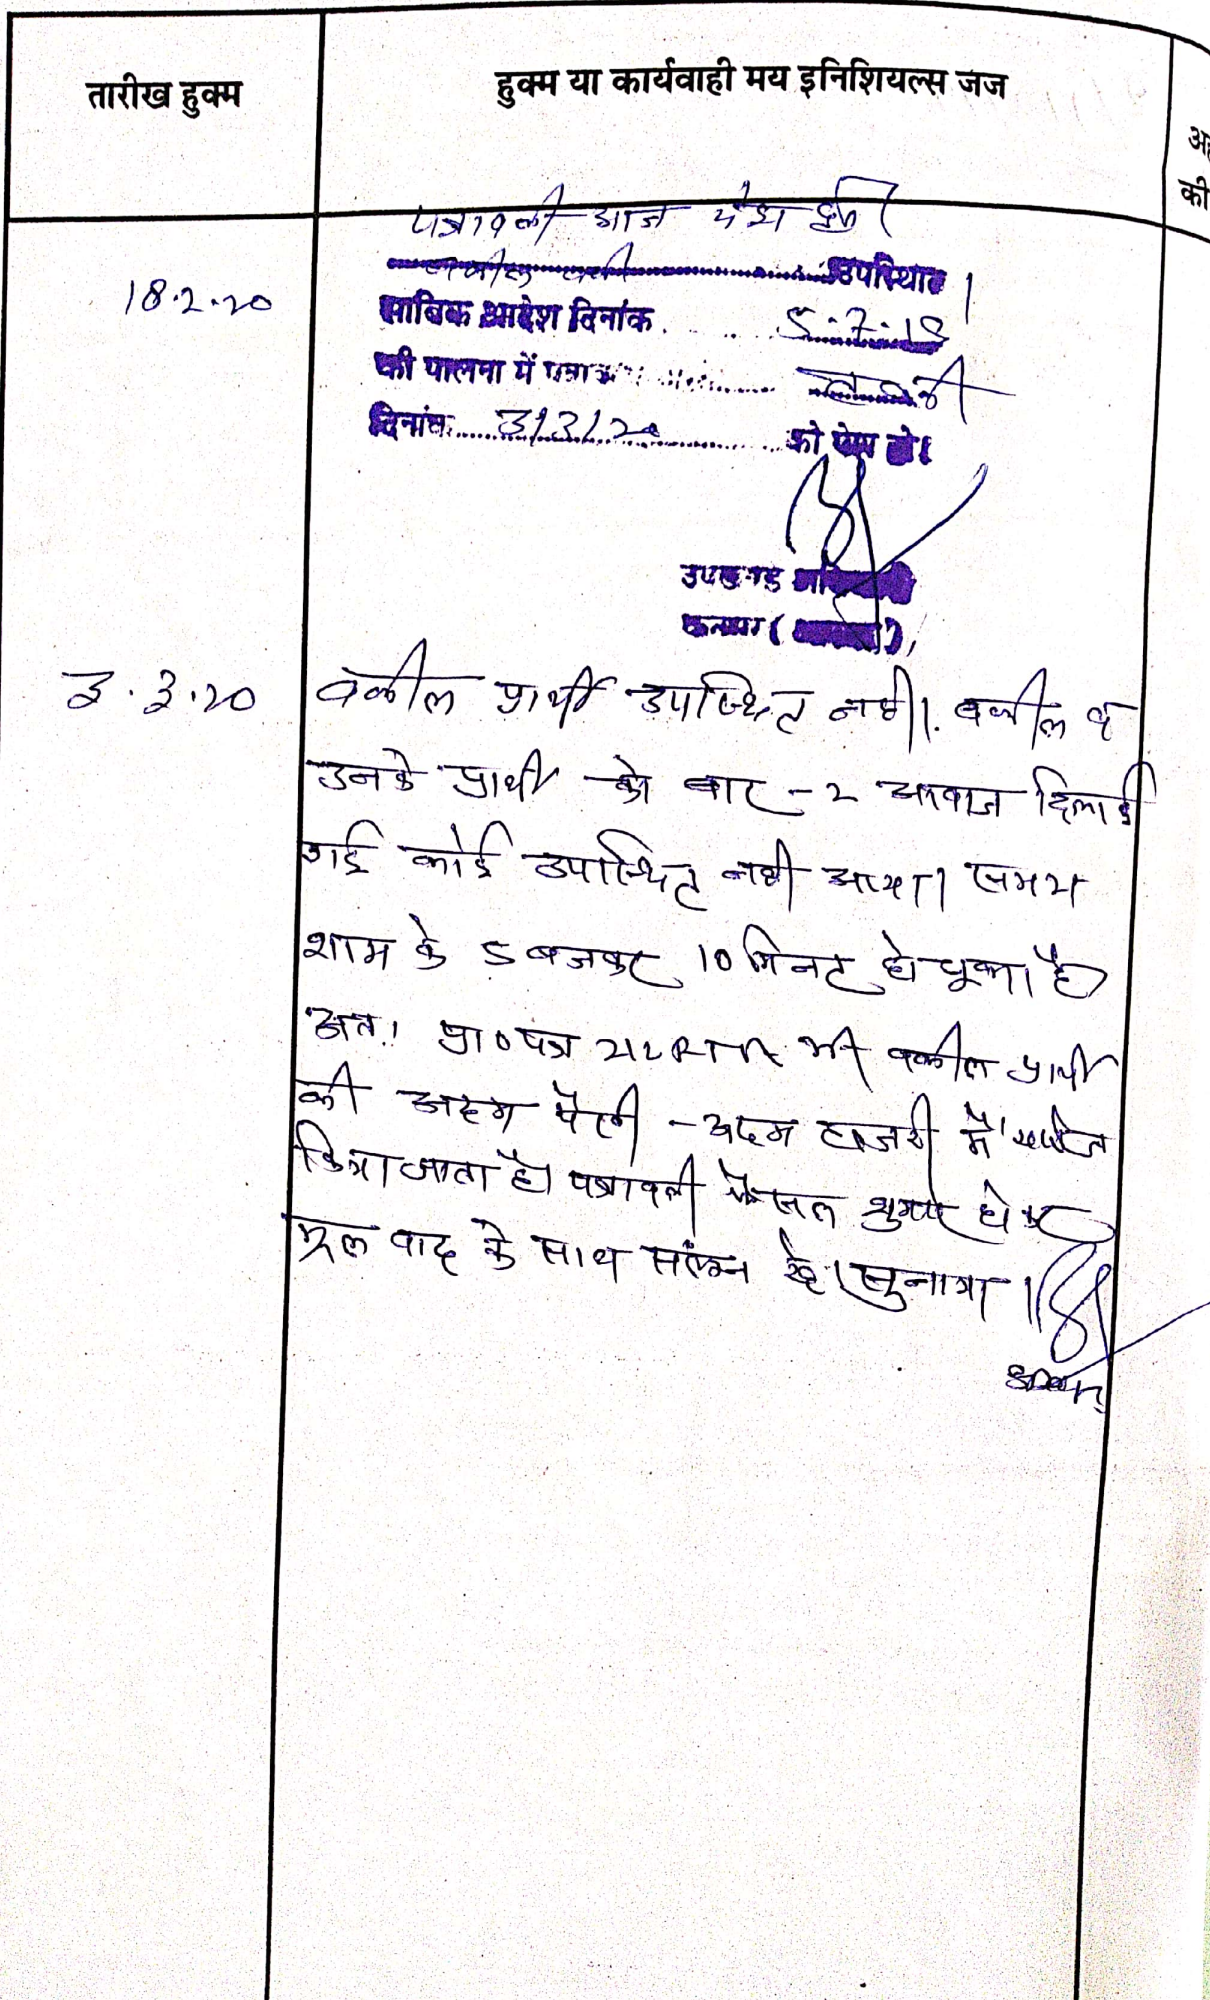 तारीख हुक्म
हुक्म या कार्यवाही मय इनिशियल्स जज
की
पत्रावली आज पेश हुई
18.2.20
वकील उपस्थित।
साबिक आदेश दिनांक 5.7.19
की पालना में
दिनांक 3/3/20 को पेश हो।
उपखण्ड
3.3.20
वकील प्रार्थी उपस्थित नही। वकील व
उनके प्रार्थी को बार-2 आवाज दिलाई
गई कोई उपस्थित नही आया। समय
शाम के 5 बजकर 10 मिनट हो चूका है
अत: प्रा०पत्र 212 RTA भी वकील प्रार्थी
की अदम पैरवी - अदम हाजरी में खारिज
किया जाता है। पत्रावली फैसल शुमार होकर
मूल वाद के साथ संलग्न रहे। सुनाया।